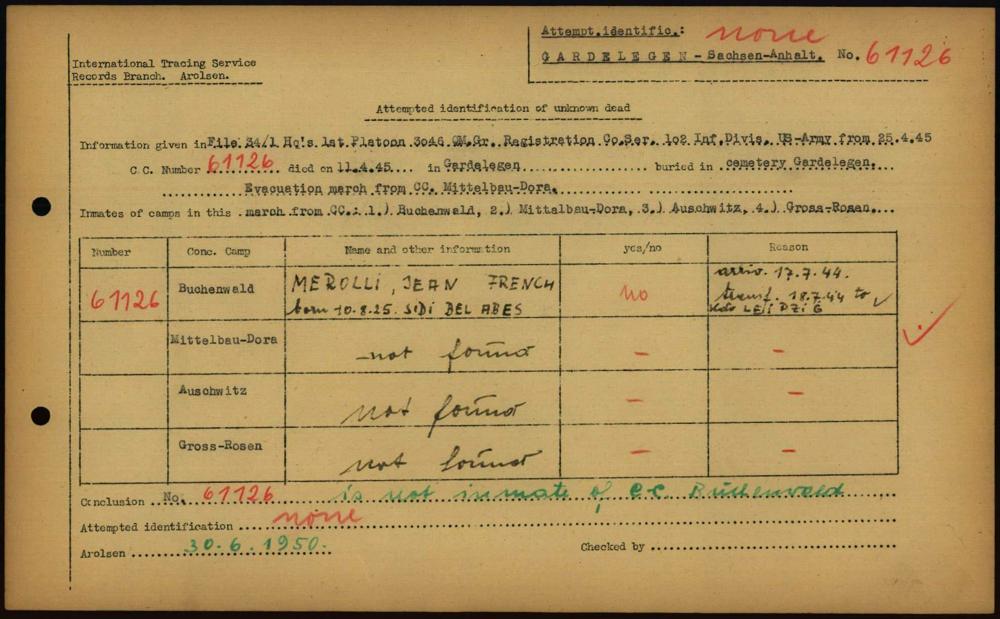 Attempt.identific.: none
GARDELEGEN - Sachsen-Anhalt. No. 61126
International Tracing Service
Records Branch. Arolsen.
Attempted identification of unknown dead
Information given in File 34/1 Hq's 1st Platoon 3046 QM.Gr. Registration Co.Ser. 102 Inf.Divis. US-Army from 25.4.45
C.C. Number 61126 died on 11.4.45 in Gardelegen buried in cemetery Gardelegen.
Evacuation march from CC. Mittelbau-Dora.
Inmates of camps in this march from CC.: 1.) Buchenwald, 2.) Mittelbau-Dora, 3.) Auschwitz, 4.) Gross-Rosen.
Number Conc. Camp Name and other information yes/no Reason
61126 Buchenwald MEROLLI, JEAN FRENCH born 10.8.25. SIDI BEL ABES no arriv. 17.7.44. transf. 18.7.44 to Kdo LEIPZIG ✓
Mittelbau-Dora not found – –
Auschwitz not found – –
Gross-Rosen not found – –
Conclusion No. 61126 is not inmate of C.C. Buchenwald
Attempted identification none
Arolsen 30.6.1950. Checked by